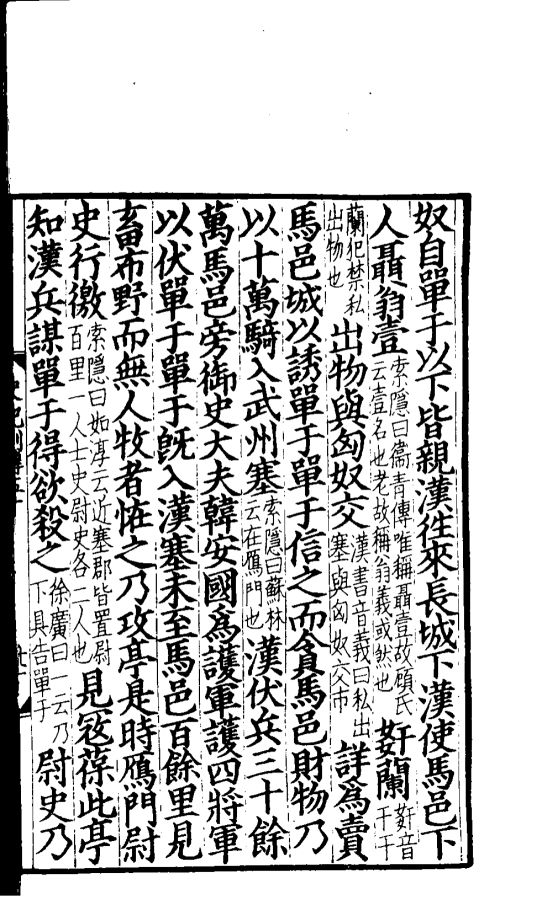 奴自單于以下皆親漢徃來長城下漢使馬邑下
人聶翁壹索隱曰衞青傳唯稱聶壹故顧氏云壹名也老故稱翁義或然也奸蘭奸音干干
蘭犯禁私出物也出物與匈奴交漢書音義曰私出塞與匈奴交市詳為賣
馬邑城以誘單于單于信之而貪馬邑財物乃
以十萬騎入武州塞索隱曰蘇林云在鴈門也漢伏兵三十餘
萬馬邑旁御史大夫韓安國為護軍護四將軍
以伏單于單于既入漢塞未至馬邑百餘里見
畜布野而無人牧者恠之乃攻亭是時鴈門尉
史行徼索隱曰如淳云近塞郡皆置尉百里一人士史尉史各二人也見宼葆此亭
知漢兵謀單于得欲殺之徐廣曰一云乃下具告單于尉史乃